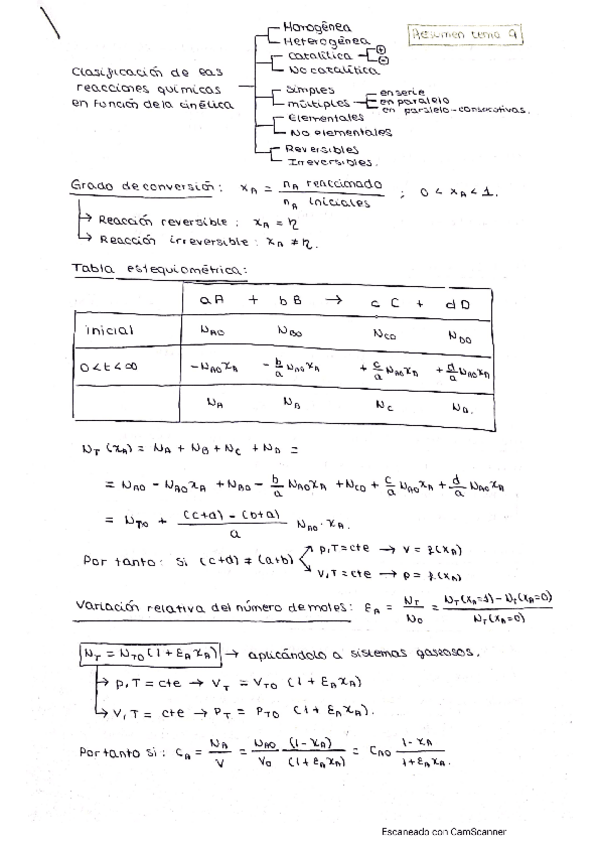 Resumen tema 9
Homogénea
Heterogénea
Catalítica ⊕ ⊖
No catalítica
Clasificación de las
reacciones químicas
en función de la cinética
Simples
múltiples
en serie
en paralelo
en paralelo-consecutivas.
Elementales
No elementales
Reversibles
Irreversibles.
Grado de conversión: xA = nA reaccionado / nA iniciales ; 0 < xA < 1.
→ Reacción reversible : xA = η
→ Reacción irreversible : xA ≠ η.
Tabla estequiométrica:
aA + bB → cC + dD
inicial NA0 NB0 NC0 ND0
0<t<∞ -NA0xA -b/a NA0xA +c/a NA0xA +d/a NA0xA
NA NB NC ND.
NT (xA) = NA + NB + NC + ND =
= NA0 - NA0xA + NB0 - b/a NA0xA + NC0 + c/a NA0xA + d/a NA0xA
= NT0 + (c+d) - (b+a) / a NA0·xA.
Por tanto: si (c+d) ≠ (a+b)
p,T=cte → V = f(xA)
V,T=cte → p = f(xA)
Variación relativa del número de moles: εA = NT/N0 = NT(xA=1) - NT(xA=0) / NT(xA=0)
NT = NT0 (1+εAxA) → aplicándolo a sistemas gaseosos.
→ p,T = cte → VT = VT0 (1+εAxA)
→ V,T = cte → PT = PT0 (1+εAxA).
Por tanto si : CA = NA/V = NA0/V0 (1-xA)/(1+εAxA) = CA0 1-xA/1+εAxA.
Escaneado con CamScanner